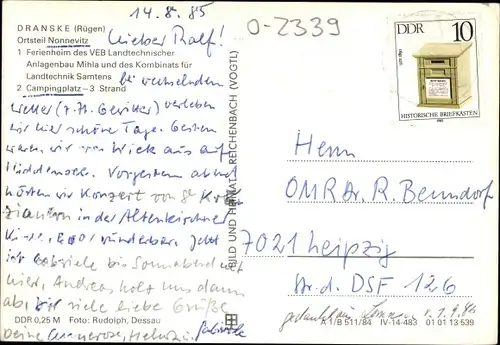 14.8.85
0-2339
DRANSKE (Rügen)
Ortsteil Nonnevitz
Lieber Ralf!
1 Ferienheim des VEB Landtechnischer
Anlagenbau Mihla und des Kombinats für
Landtechnik Samtens
bei wechselndem
2 Campingplatz – 3 Strand
Wetter (z.B. Gewitter) verleben
wir hier schöne Tage. Gestern
waren wir von Wiek aus auf
Hiddensee. Vorgestern abend
hörten wir Konzert von
in der Altenkirchner
Kirche, wunderbar. Jetzt
ist Gabriele bis Sonnabend mit
hier, Andreas holt uns dann
ab, viele liebe Grüße
Deine Gabriele
DDR 0,25 M Foto: Rudolph, Dessau
BILD UND HEIMAT REICHENBACH (VOGTL)
DDR 10
um 1896
HISTORISCHE BRIEFKÄSTEN
1985
Herrn
OMR Dr. R. Benndorf
7021 Leipzig
Str. d. DSF 126
A 1/B 511/84 IV-14-483 01 01 13 539